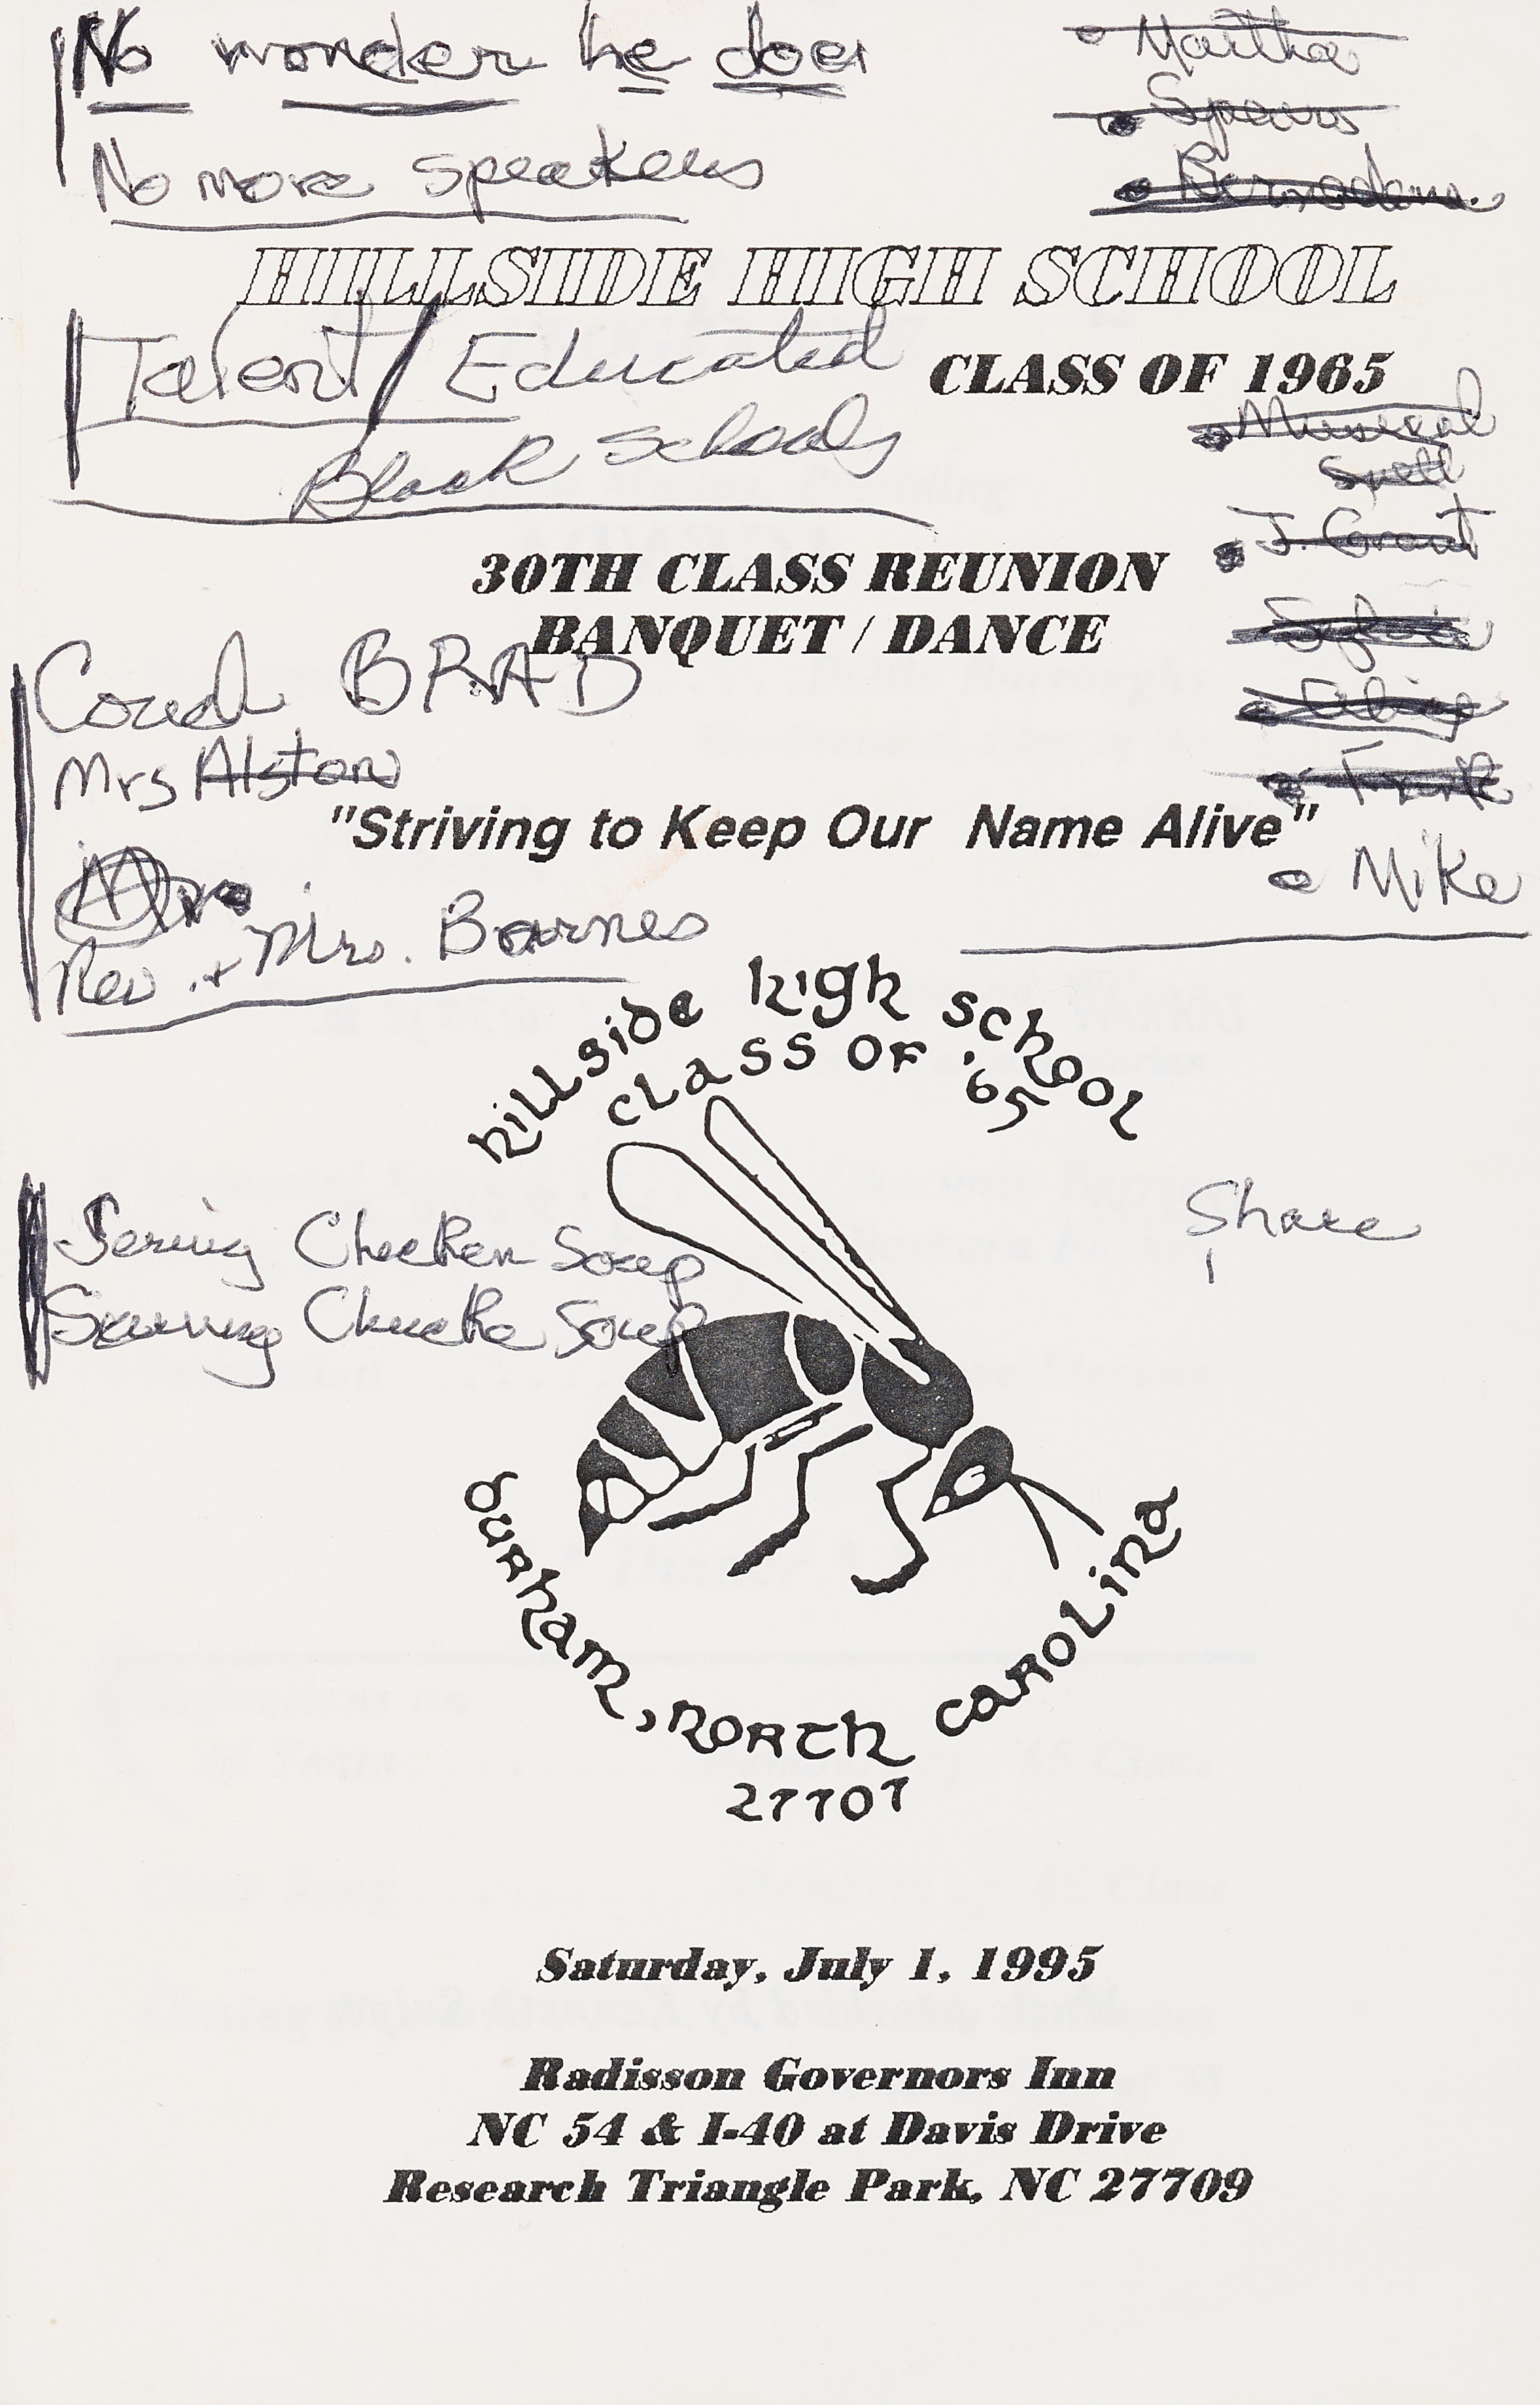 No wonder he does
No more speakers
Martha
Spears
HILLSIDE HIGH SCHOOL
CLASS OF 1965
Talent / Educated
Black Schools
Musical
J. Grant
30TH CLASS REUNION
BANQUET / DANCE
Sylvia
Coach BRAD
Mrs Alston
"Striving to Keep Our Name Alive"
Mike
Rev. + Mrs. Barnes
hillside high school
class of '65
Share
Chicken Soup
Soup
durham, north carolina
27707
Saturday, July 1, 1995
Radisson Governors Inn
NC 54 & I-40 at Davis Drive
Research Triangle Park, NC 27709